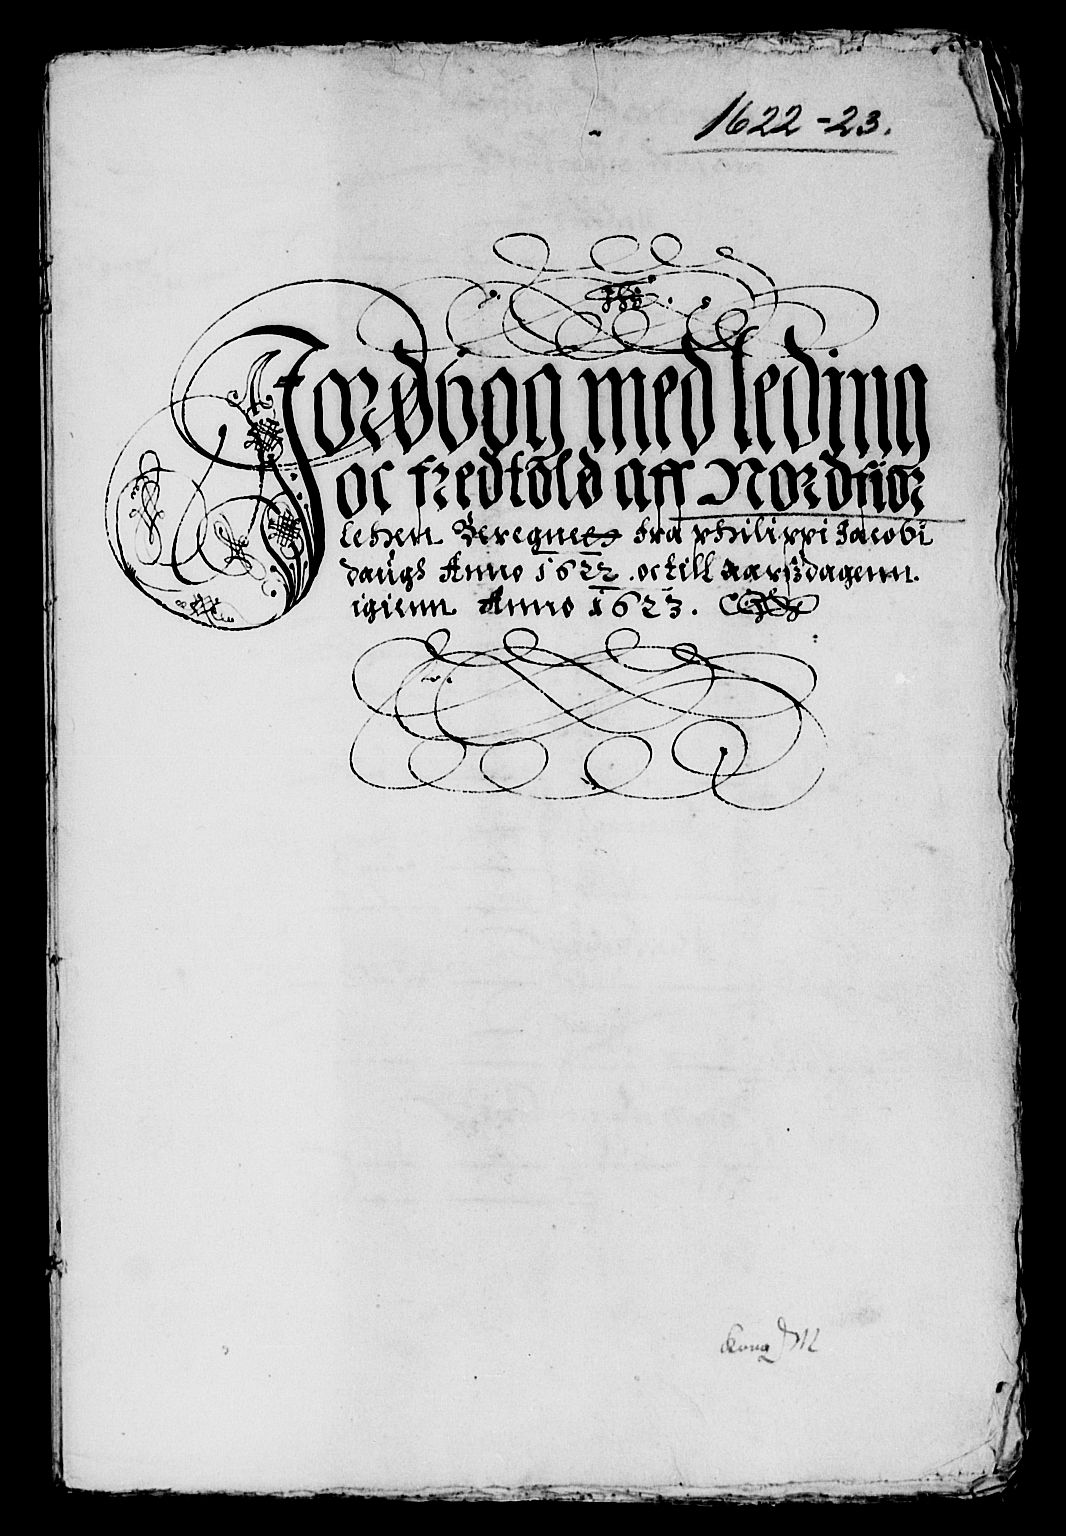 1622-23.
Jordbog med leding
oc fredtold aff Nordfior
lehen Beregnet fra Philippi Jacobi
daugs Anno 1622 .oc till aarszdagenn.
igienn Anno 1623.
Kong M